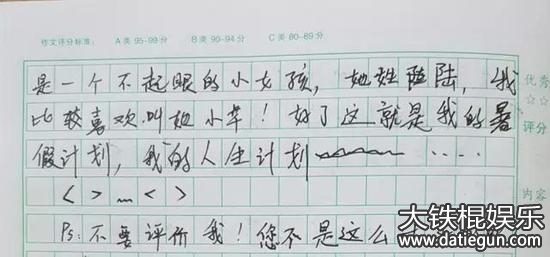 作文评分标准: A类 95-99分 B类 90-94分 C类 80-89分
是一个不起眼的小女孩,她姓陆,我
优秀
比较喜欢叫她小草!好了这就是我的暑
评分
假计划,我的人生计划~~~ ....
< > … < >
内容
Ps:不要评价我!您不是这么
大铁棍娱乐
www.datiegun.com